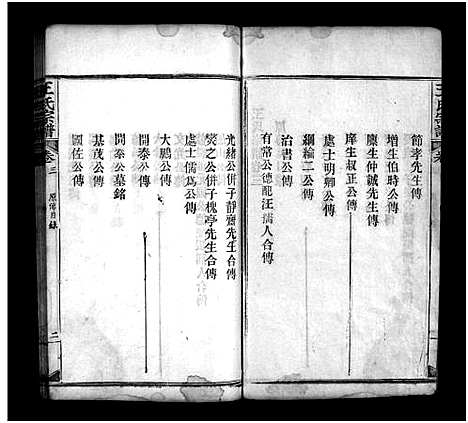 節孝先生傳
增生伯時公傳
廩生仲誠先生傳
庠生叔正公傳
處士明卿公傳
綱綸二公傳
治書公傳
有常公德配汪孺人合傳
光緒公併子靜齋先生合傳
熒之公併子槐亭先生合傳
處士儒為公傳
大鵬公傳
開泰公傳
開泰公墓銘
基茂公傳
國佐公傳
王氏宗譜
卷二
原傳目錄
二